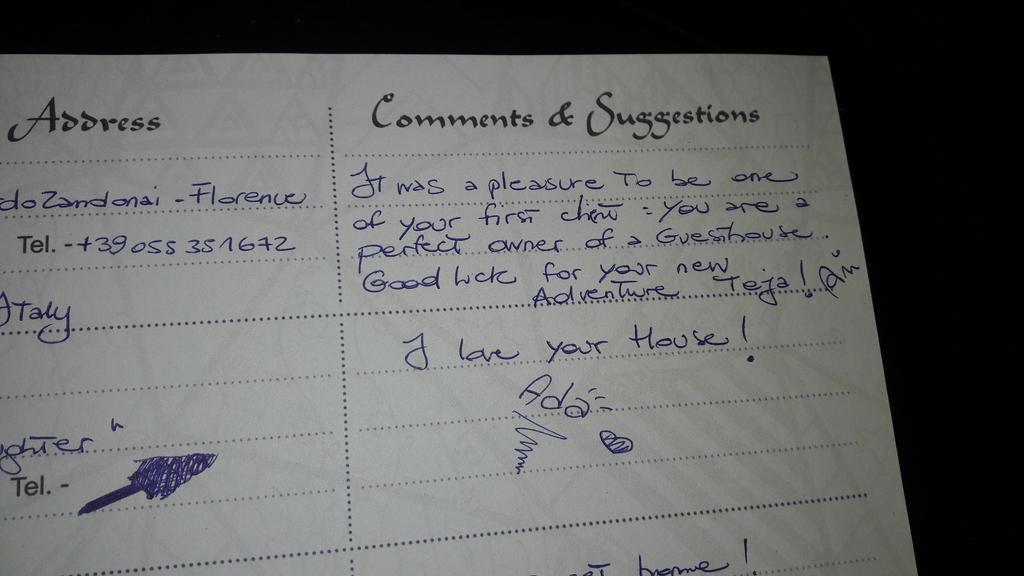 Address
Comments & Suggestions
doZandonai - Florence
Tel. - +39 055 351672
Italy
ghter "
Tel. -
It was a pleasure To be one
of your first client : you are a
perfect owner of a Guesthouse.
Good luck for your new
Adventure Teja!
I love your House!
Ada
home!